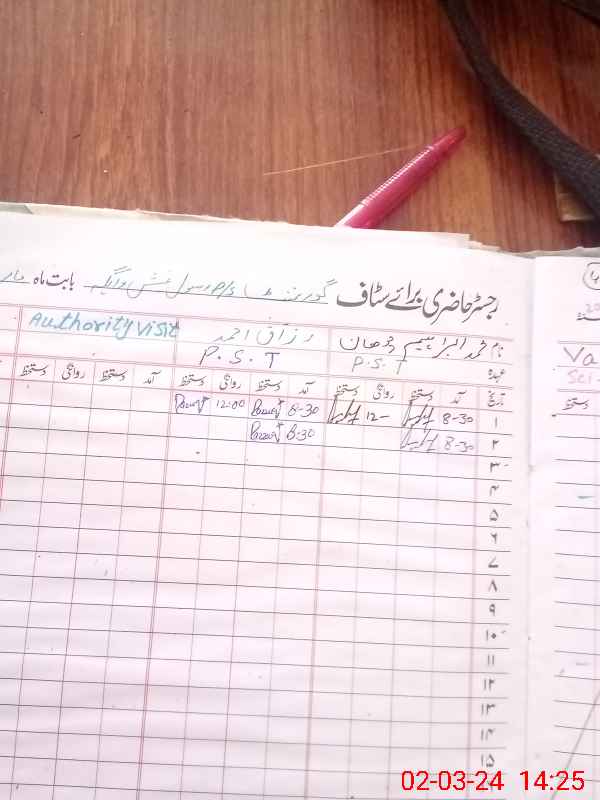 رجسٹر حاضری برائے سٹاف گورنمنٹ P/S رسول بخش بابت ماہ
نام محمد ابراہیم چوھان رزاق احمد Authority visit
عہدہ P.S.T P.S.T
تاریخ آمد دستخط روانگی دستخط آمد دستخط روانگی دستخط آمد دستخط روانگی دستخط
۱ 8-30 12- 8-30 12:00
۲ 8-30 8-30
۳
۴
۵
۶
۷
۸
۹
۱۰
۱۱
۱۲
۱۳
۱۴
۱۵
Va
Sci-
دستخط
02-03-24 14:25